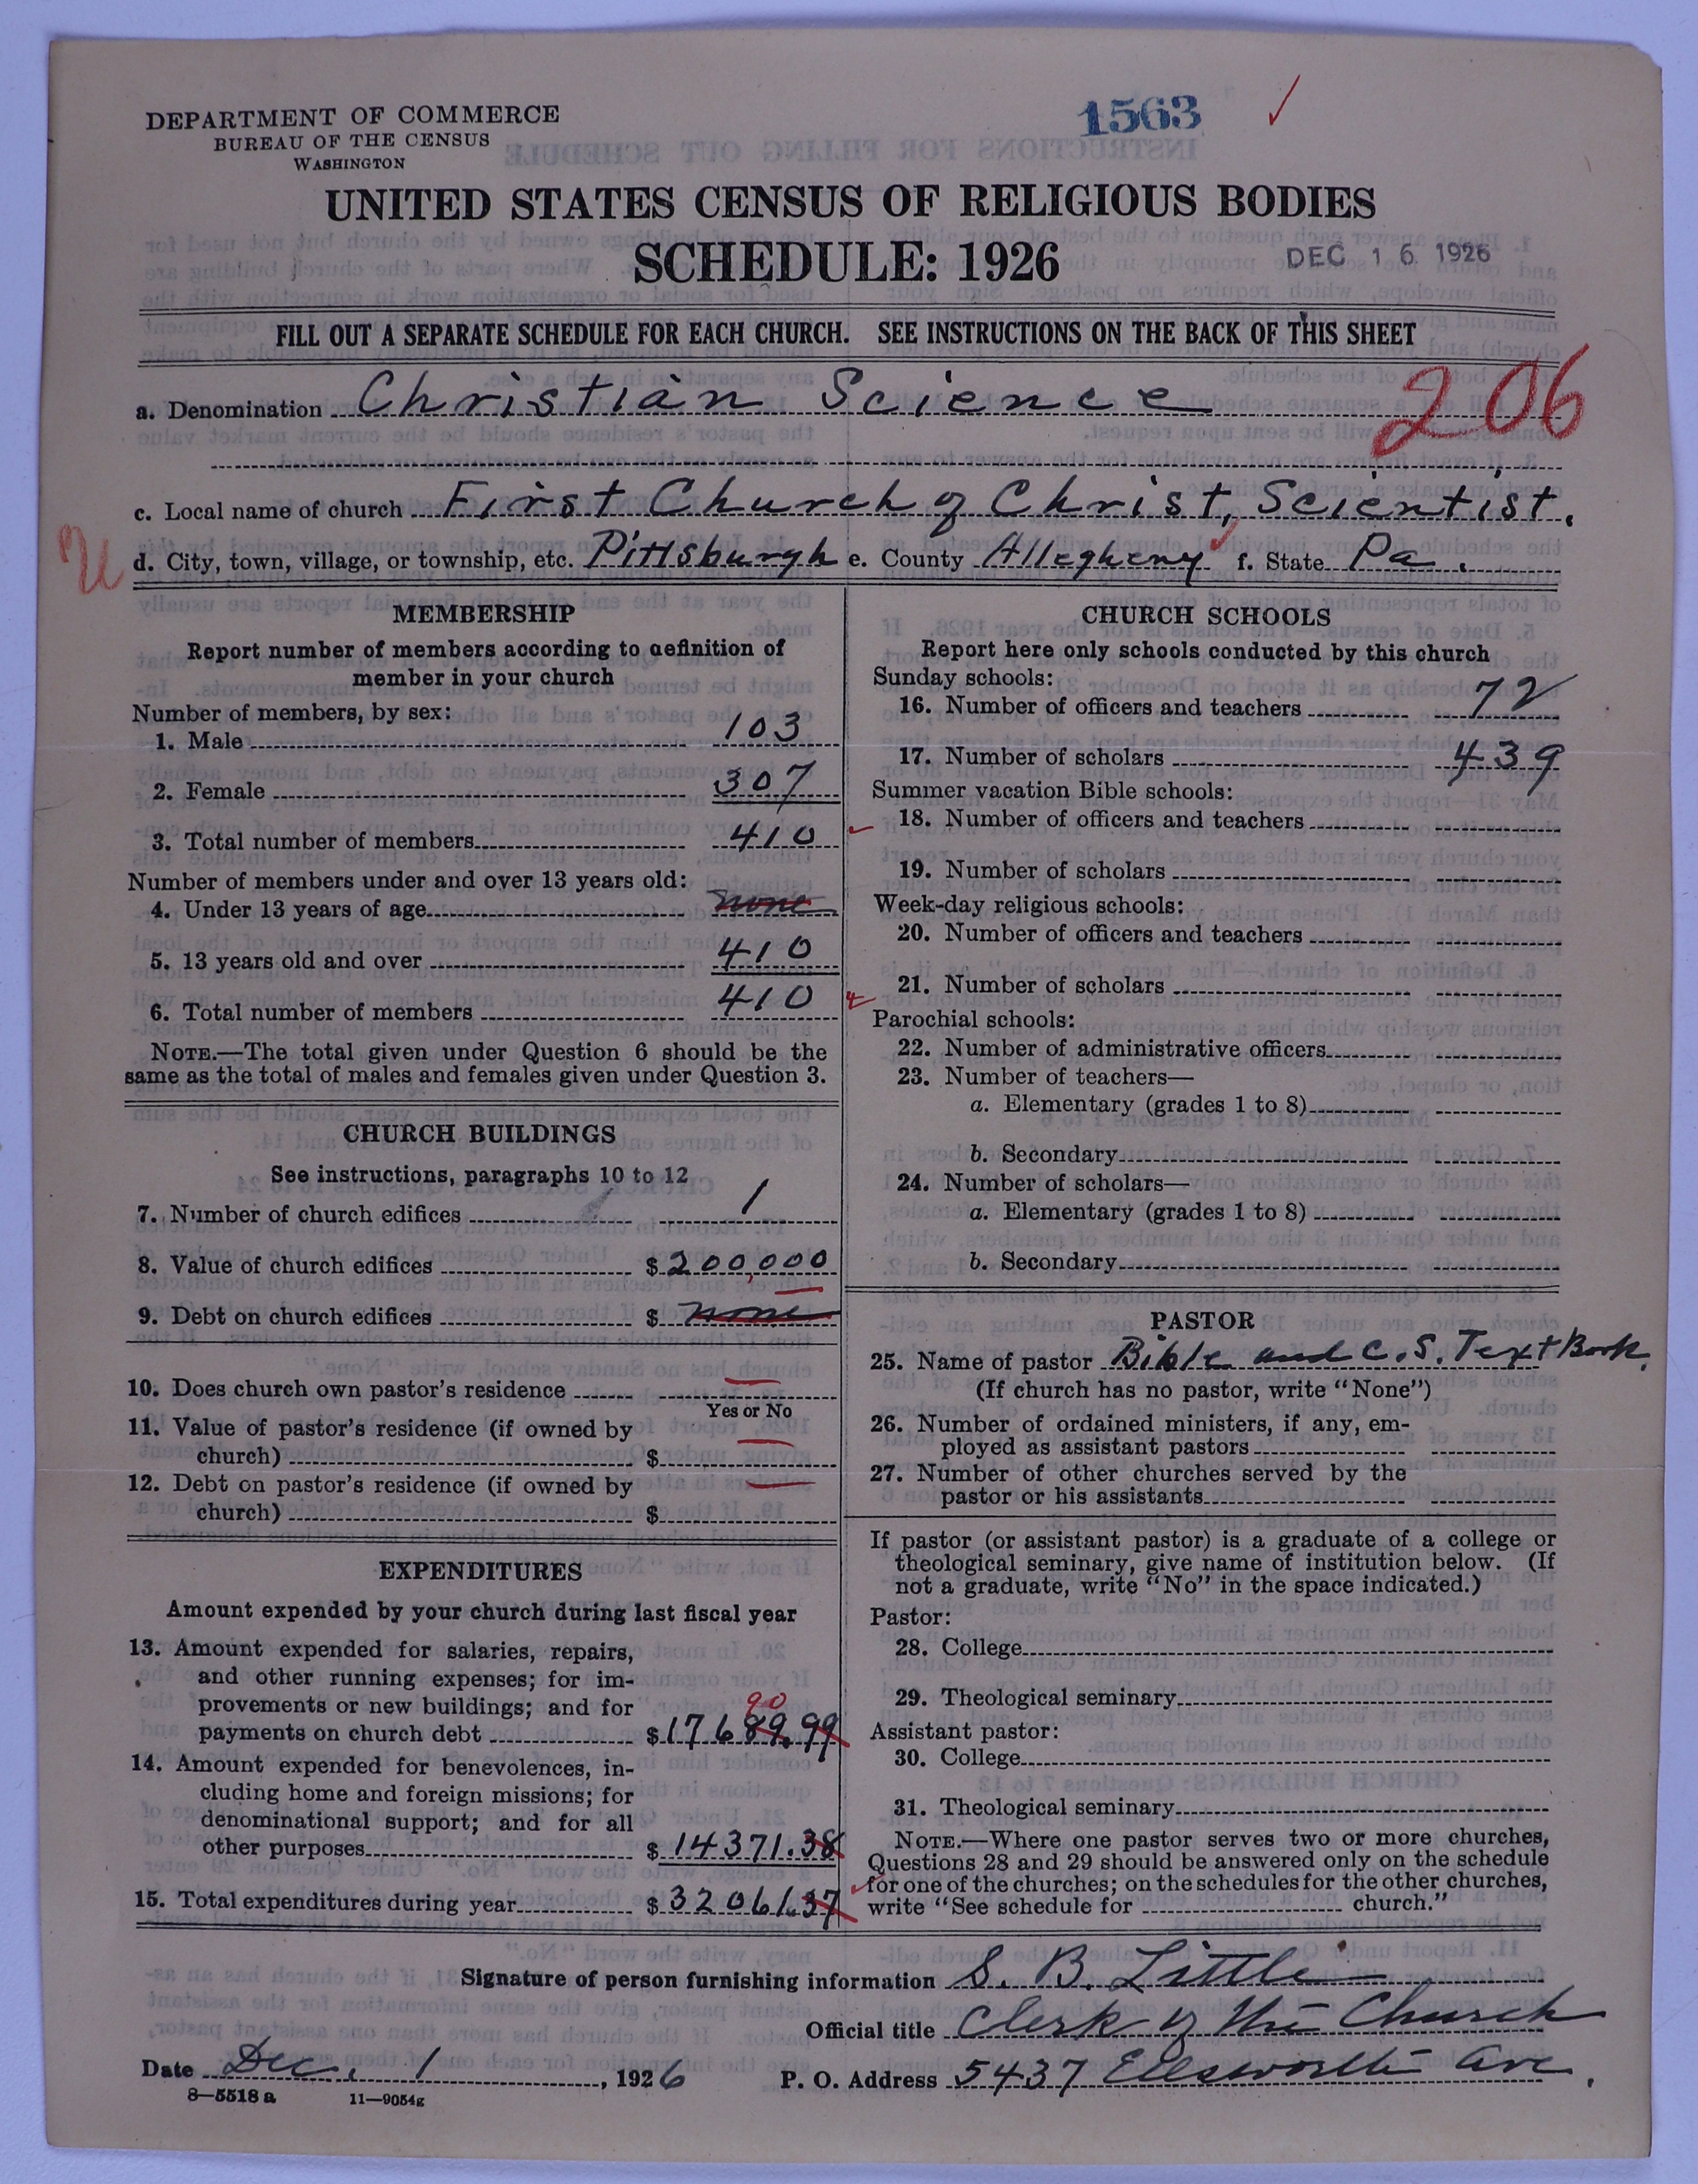 DEPARTMENT OF COMMERCE
BUREAU OF THE CENSUS
WASHINGTON
1563
UNITED STATES CENSUS OF RELIGIOUS BODIES
SCHEDULE: 1926
DEC 16 1926
FILL OUT A SEPARATE SCHEDULE FOR EACH CHURCH. SEE INSTRUCTIONS ON THE BACK OF THIS SHEET
a. Denomination Christian Science
206
c. Local name of church First Church of Christ, Scientist.
d. City, town, village, or township, etc. Pittsburgh e. County Allegheny f. State Pa.
MEMBERSHIP
Report number of members according to definition of
member in your church
Number of members, by sex:
1. Male 103
2. Female 307
3. Total number of members 410
Number of members under and over 13 years old:
4. Under 13 years of age none
5. 13 years old and over 410
6. Total number of members 410
NOTE.—The total given under Question 6 should be the
same as the total of males and females given under Question 3.
CHURCH BUILDINGS
See instructions, paragraphs 10 to 12
7. Number of church edifices 1
8. Value of church edifices $ 200,000
9. Debt on church edifices $ none
10. Does church own pastor's residence
Yes or No
11. Value of pastor's residence (if owned by
church) $
12. Debt on pastor's residence (if owned by
church) $
EXPENDITURES
Amount expended by your church during last fiscal year
13. Amount expended for salaries, repairs,
and other running expenses; for im-
provements or new buildings; and for
90
payments on church debt $ 17689.99
14. Amount expended for benevolences, in-
cluding home and foreign missions; for
denominational support; and for all
other purposes $ 14371.38
15. Total expenditures during year $ 32061.37
CHURCH SCHOOLS
Report here only schools conducted by this church
Sunday schools:
16. Number of officers and teachers 72
17. Number of scholars 439
Summer vacation Bible schools:
18. Number of officers and teachers
19. Number of scholars
Week-day religious schools:
20. Number of officers and teachers
21. Number of scholars
Parochial schools:
22. Number of administrative officers
23. Number of teachers—
a. Elementary (grades 1 to 8)
b. Secondary
24. Number of scholars—
a. Elementary (grades 1 to 8)
b. Secondary
PASTOR
25. Name of pastor Bible and C. S. Text Book.
(If church has no pastor, write "None")
26. Number of ordained ministers, if any, em-
ployed as assistant pastors
27. Number of other churches served by the
pastor or his assistants
If pastor (or assistant pastor) is a graduate of a college or
theological seminary, give name of institution below. (If
not a graduate, write "No" in the space indicated.)
Pastor:
28. College
29. Theological seminary
Assistant pastor:
30. College
31. Theological seminary
NOTE.—Where one pastor serves two or more churches,
Questions 28 and 29 should be answered only on the schedule
for one of the churches; on the schedules for the other churches,
write "See schedule for church."
Signature of person furnishing information S. B. Little
Official title Clerk of the Church
Date Dec. 1, 1926 P. O. Address 5437 Ellsworth Ave.
8—5518 a 11—9054g